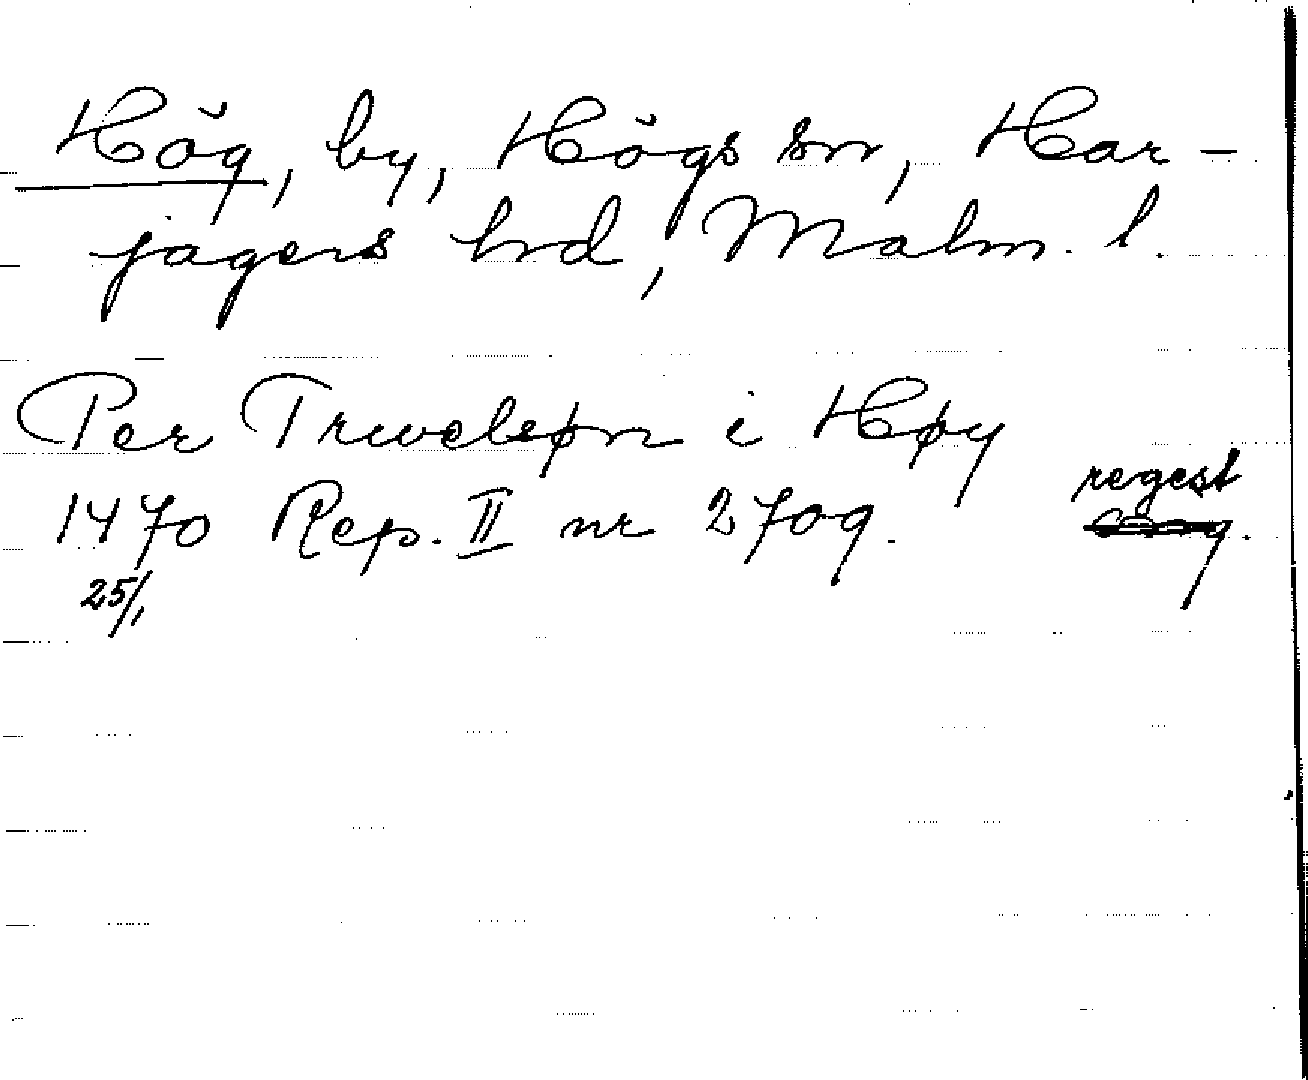 Hög, by, Högs sn, Har-
jagers hrd, Malm. l.
Per Truvelsøn i Høy
1470 Rep. II nr 2709. regest
25/1